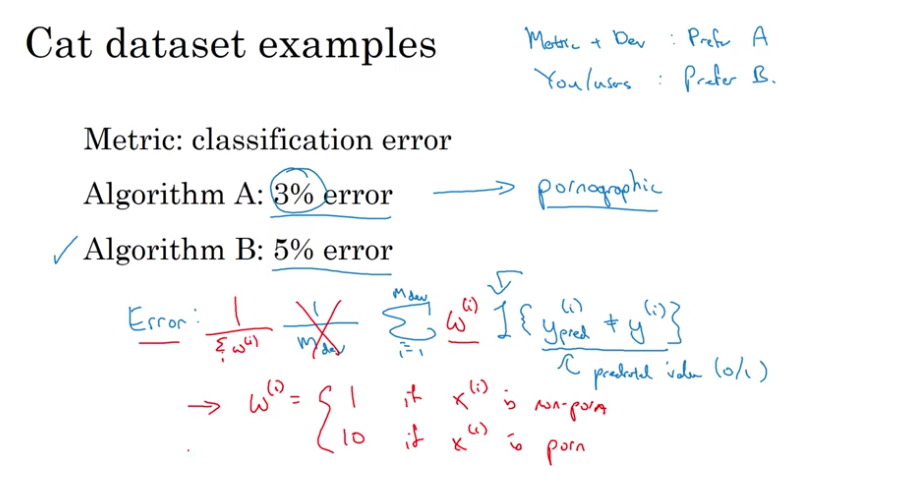 Cat dataset examples
Metric + Dev : Prefer A
You/users : Prefer B.
Metric: classification error
Algorithm A: 3% error → pornographic
✓ Algorithm B: 5% error
Error: 1/∑ᵢ w⁽ⁱ⁾ 1/m_dev ∑_{i=1}^{m_dev} w⁽ⁱ⁾ 1{y_pred⁽ⁱ⁾ ≠ y⁽ⁱ⁾}
predicted value (0/1)
→ w⁽ⁱ⁾ = { 1 if x⁽ⁱ⁾ is non-porn
10 if x⁽ⁱ⁾ is porn